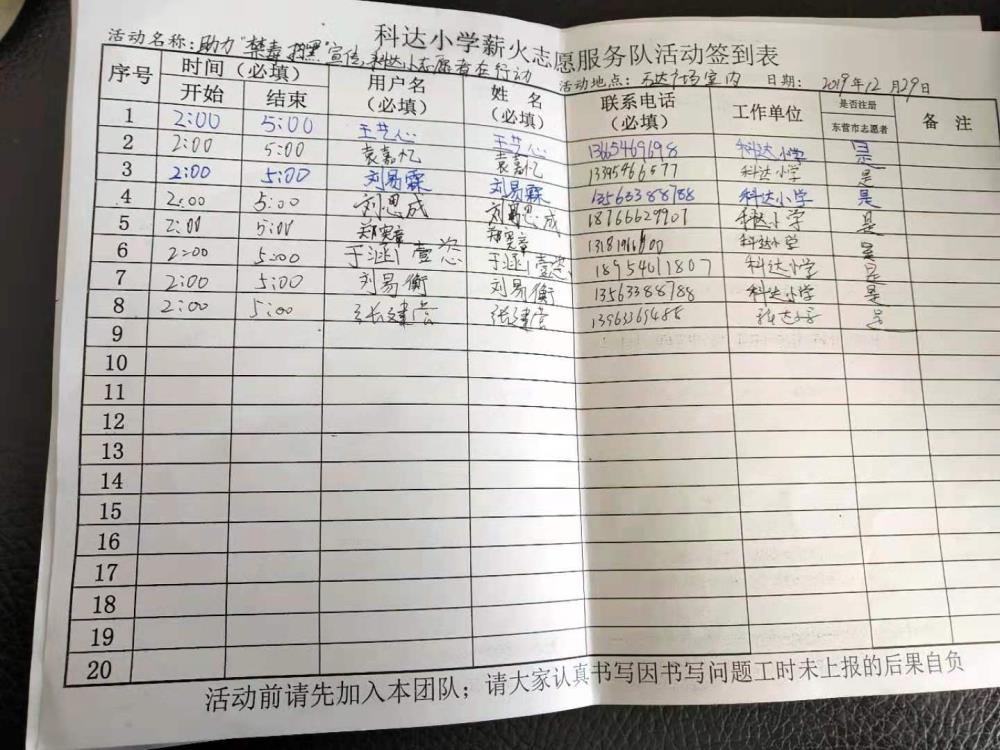 科达小学薪火志愿服务队活动签到表
活动名称：助力"禁毒扫黑"宣传，科达小志愿者在行动 活动地点：万达广场室内 日期：2019年12月29日
序号 时间（必填） 开始 结束 用户名（必填） 姓名（必填） 联系电话（必填） 工作单位 是否注册东营市志愿者 备注
1 2:00 5:00 王艺心 王艺心 13665469698 科达小学 是
2 2:00 5:00 袁嘉忆 袁嘉忆 13345466577 科达小学 是
3 2:00 5:00 刘易霖 刘易霖 13563388788 科达小学 是
4 2:00 5:00 刘恩成 刘恩成 18766629907 科达小学 是
5 2:00 5:00 郑宪章 郑宪章 科达小学 是
6 2:00 5:00 于涵 于涵 18954011807 科达小学 是
7 2:00 5:00 刘易衡 刘易衡 13563388788 科达小学 是
8 2:00 5:00 张建营 张建营 13963369488 科达小学 是
9
10
11
12
13
14
15
16
17
18
19
20
活动前请先加入本团队；请大家认真书写因书写问题工时未上报的后果自负